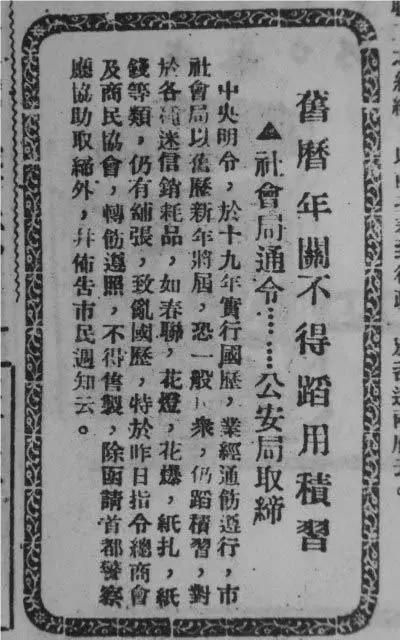 舊曆年關不得蹈用積習
▲社會局通令⋯⋯⋯公安局取締
中央明令，於十九年實行國歷，業經通飭遵行，市
社會局以舊歷新年將屆，恐一般民衆，仍蹈積習，對
於各種迷信銷耗品，如春聯，花燈，花爆，紙扎，紙
錢等類，仍有鋪張，致亂國歷，特於昨日指令總商會
及商民協會，轉飭遵照，不得售製，除函請首都警察
廳協助取締外，幷佈告市民週知云。